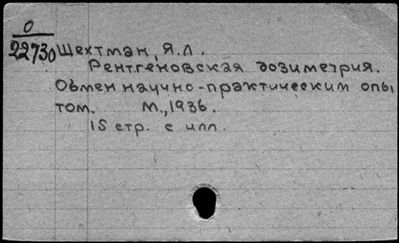 О
22730 Шехтман, Я.Л.
Рентгеновская дозиметрия.
Обмен научно-практическим опы
том. М., 1936.
15 стр. с илл.